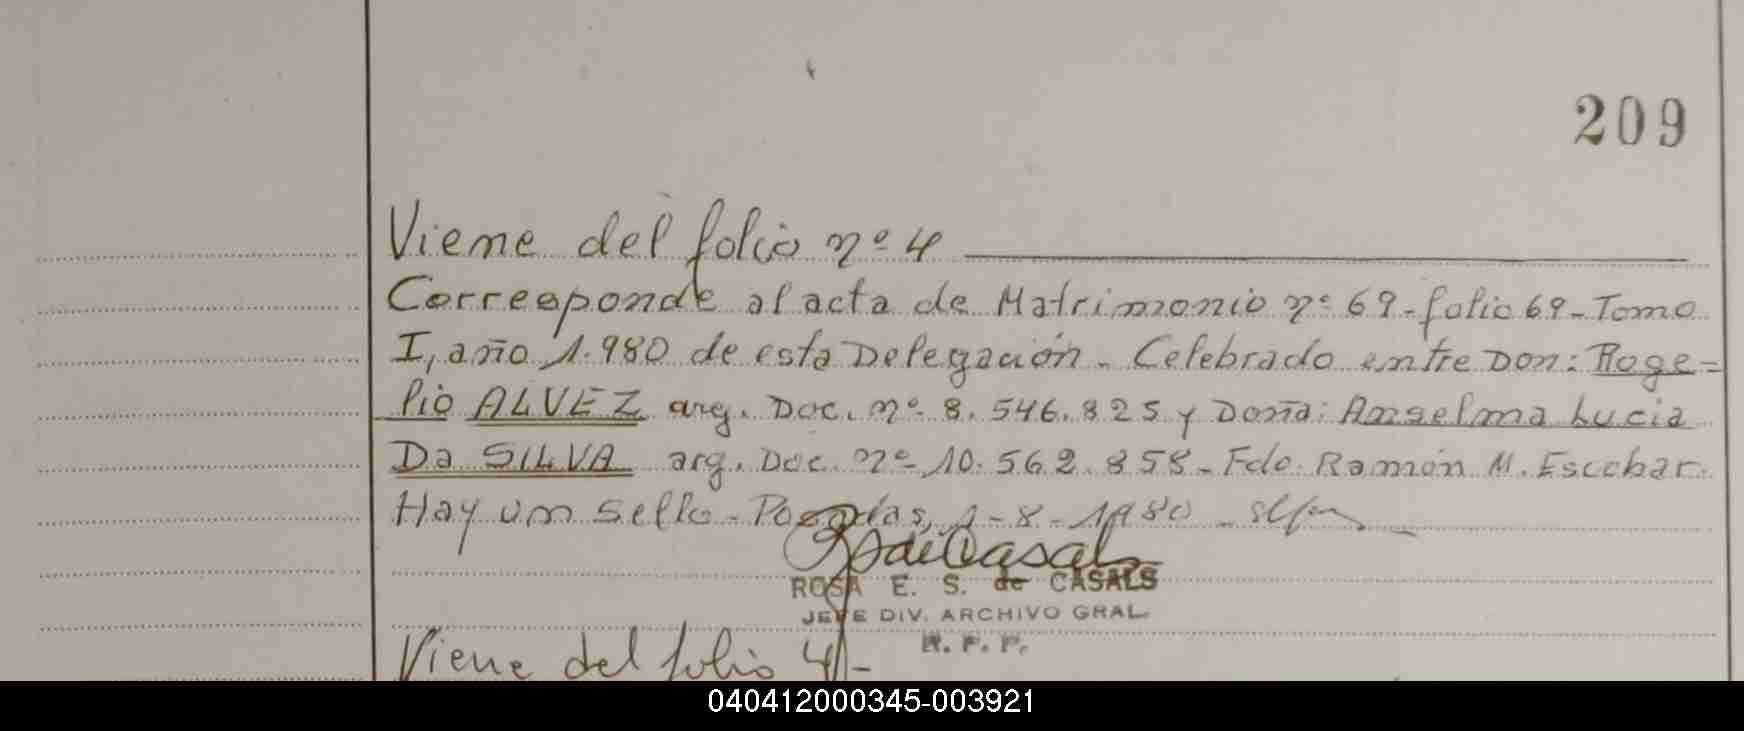 209
Viene del folio nº 4
Corresponde al acta de Matrimonio nº 69 - folio 69 - Tomo
I, año 1.980 de esta Delegación - Celebrado entre Don: Roge=
lio ALVEZ arg. Doc. nº 8.546.825 y Doña: Anselma Lucia
Da SILVA arg. Doc. nº 10.562.858 - Fdo. Ramón M. Escobar.
Hay un sello - Posadas, 1-8-1980 -
ROSA E. S. de CASALS
JEFE DIV. ARCHIVO GRAL.
R. P. P.
Viene del folio 4 -
040412000345-003921